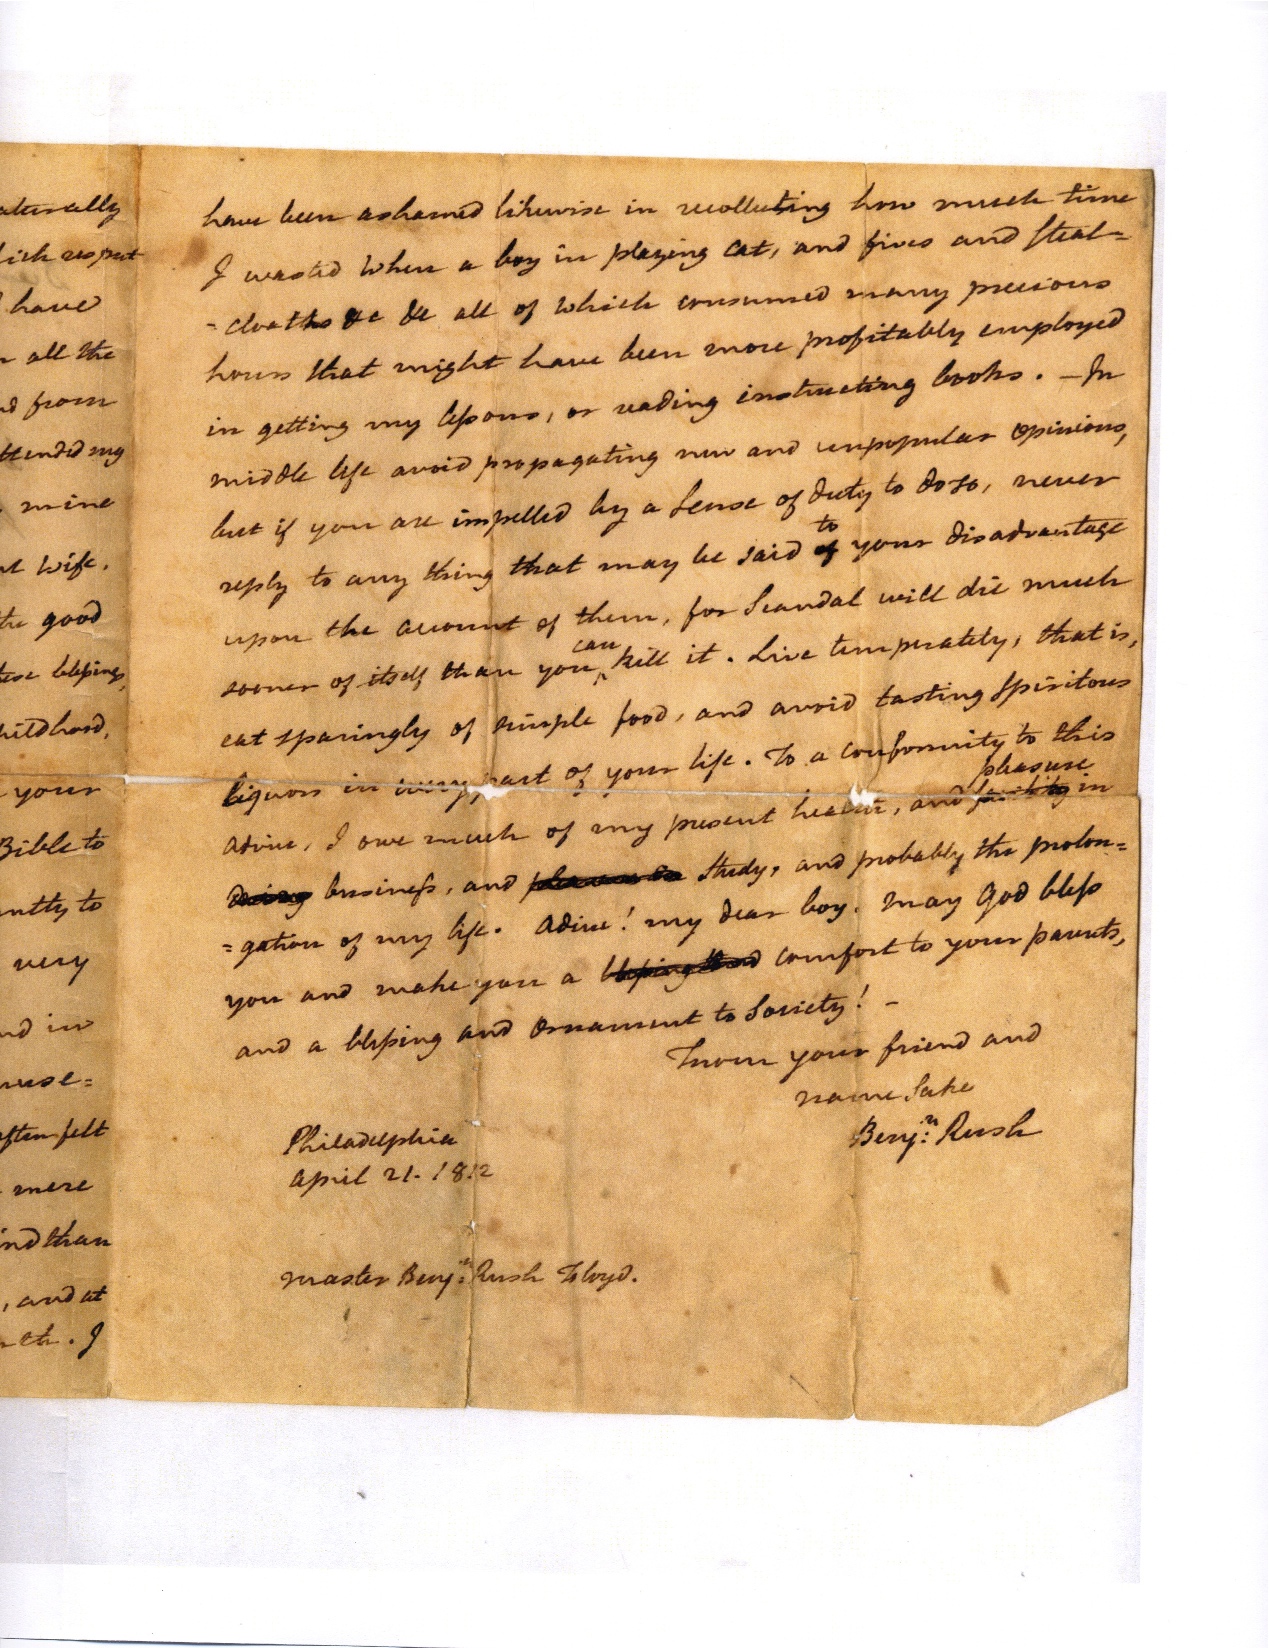 aturally
lich respect
have
all the
d from
ttended my
mine
wife.
the good
blessings,
hildhood,
your
Bible to
ntly to
very
nd in
muse=
often felt
mere
ind than
, and at
I
have been ashamed likewise in recollecting how much time
I wasted when a boy in playing cat, and fives and steal=
=cloaths &c &c all of which consumed many precious
hours that might have been more profitably employed
in getting my lessons, or reading instructing books. — In
middle life avoid propagating new and unpopular opinions,
but if you are impelled by a sense of duty to do so, never
reply to any thing that may be said of to your disadvantage
upon the account of them, for scandal will die much
sooner of itself than you can kill it. Live temperately, that is,
eat sparingly of simple food, and avoid tasting spiritous
liquors in every part of your life. To a conformity to this
advice, I owe much of my present health, and pleasure in
business, and study, and probably the prolon=
=gation of my life. Adieu! my dear boy. May God bless
you and make you a comfort to your parents,
and a blessing and ornament to society! –
From your friend and
name sake
Benjn: Rush
Philadelphia
April 21. 1812
Master Benjn: Rush Floyd.